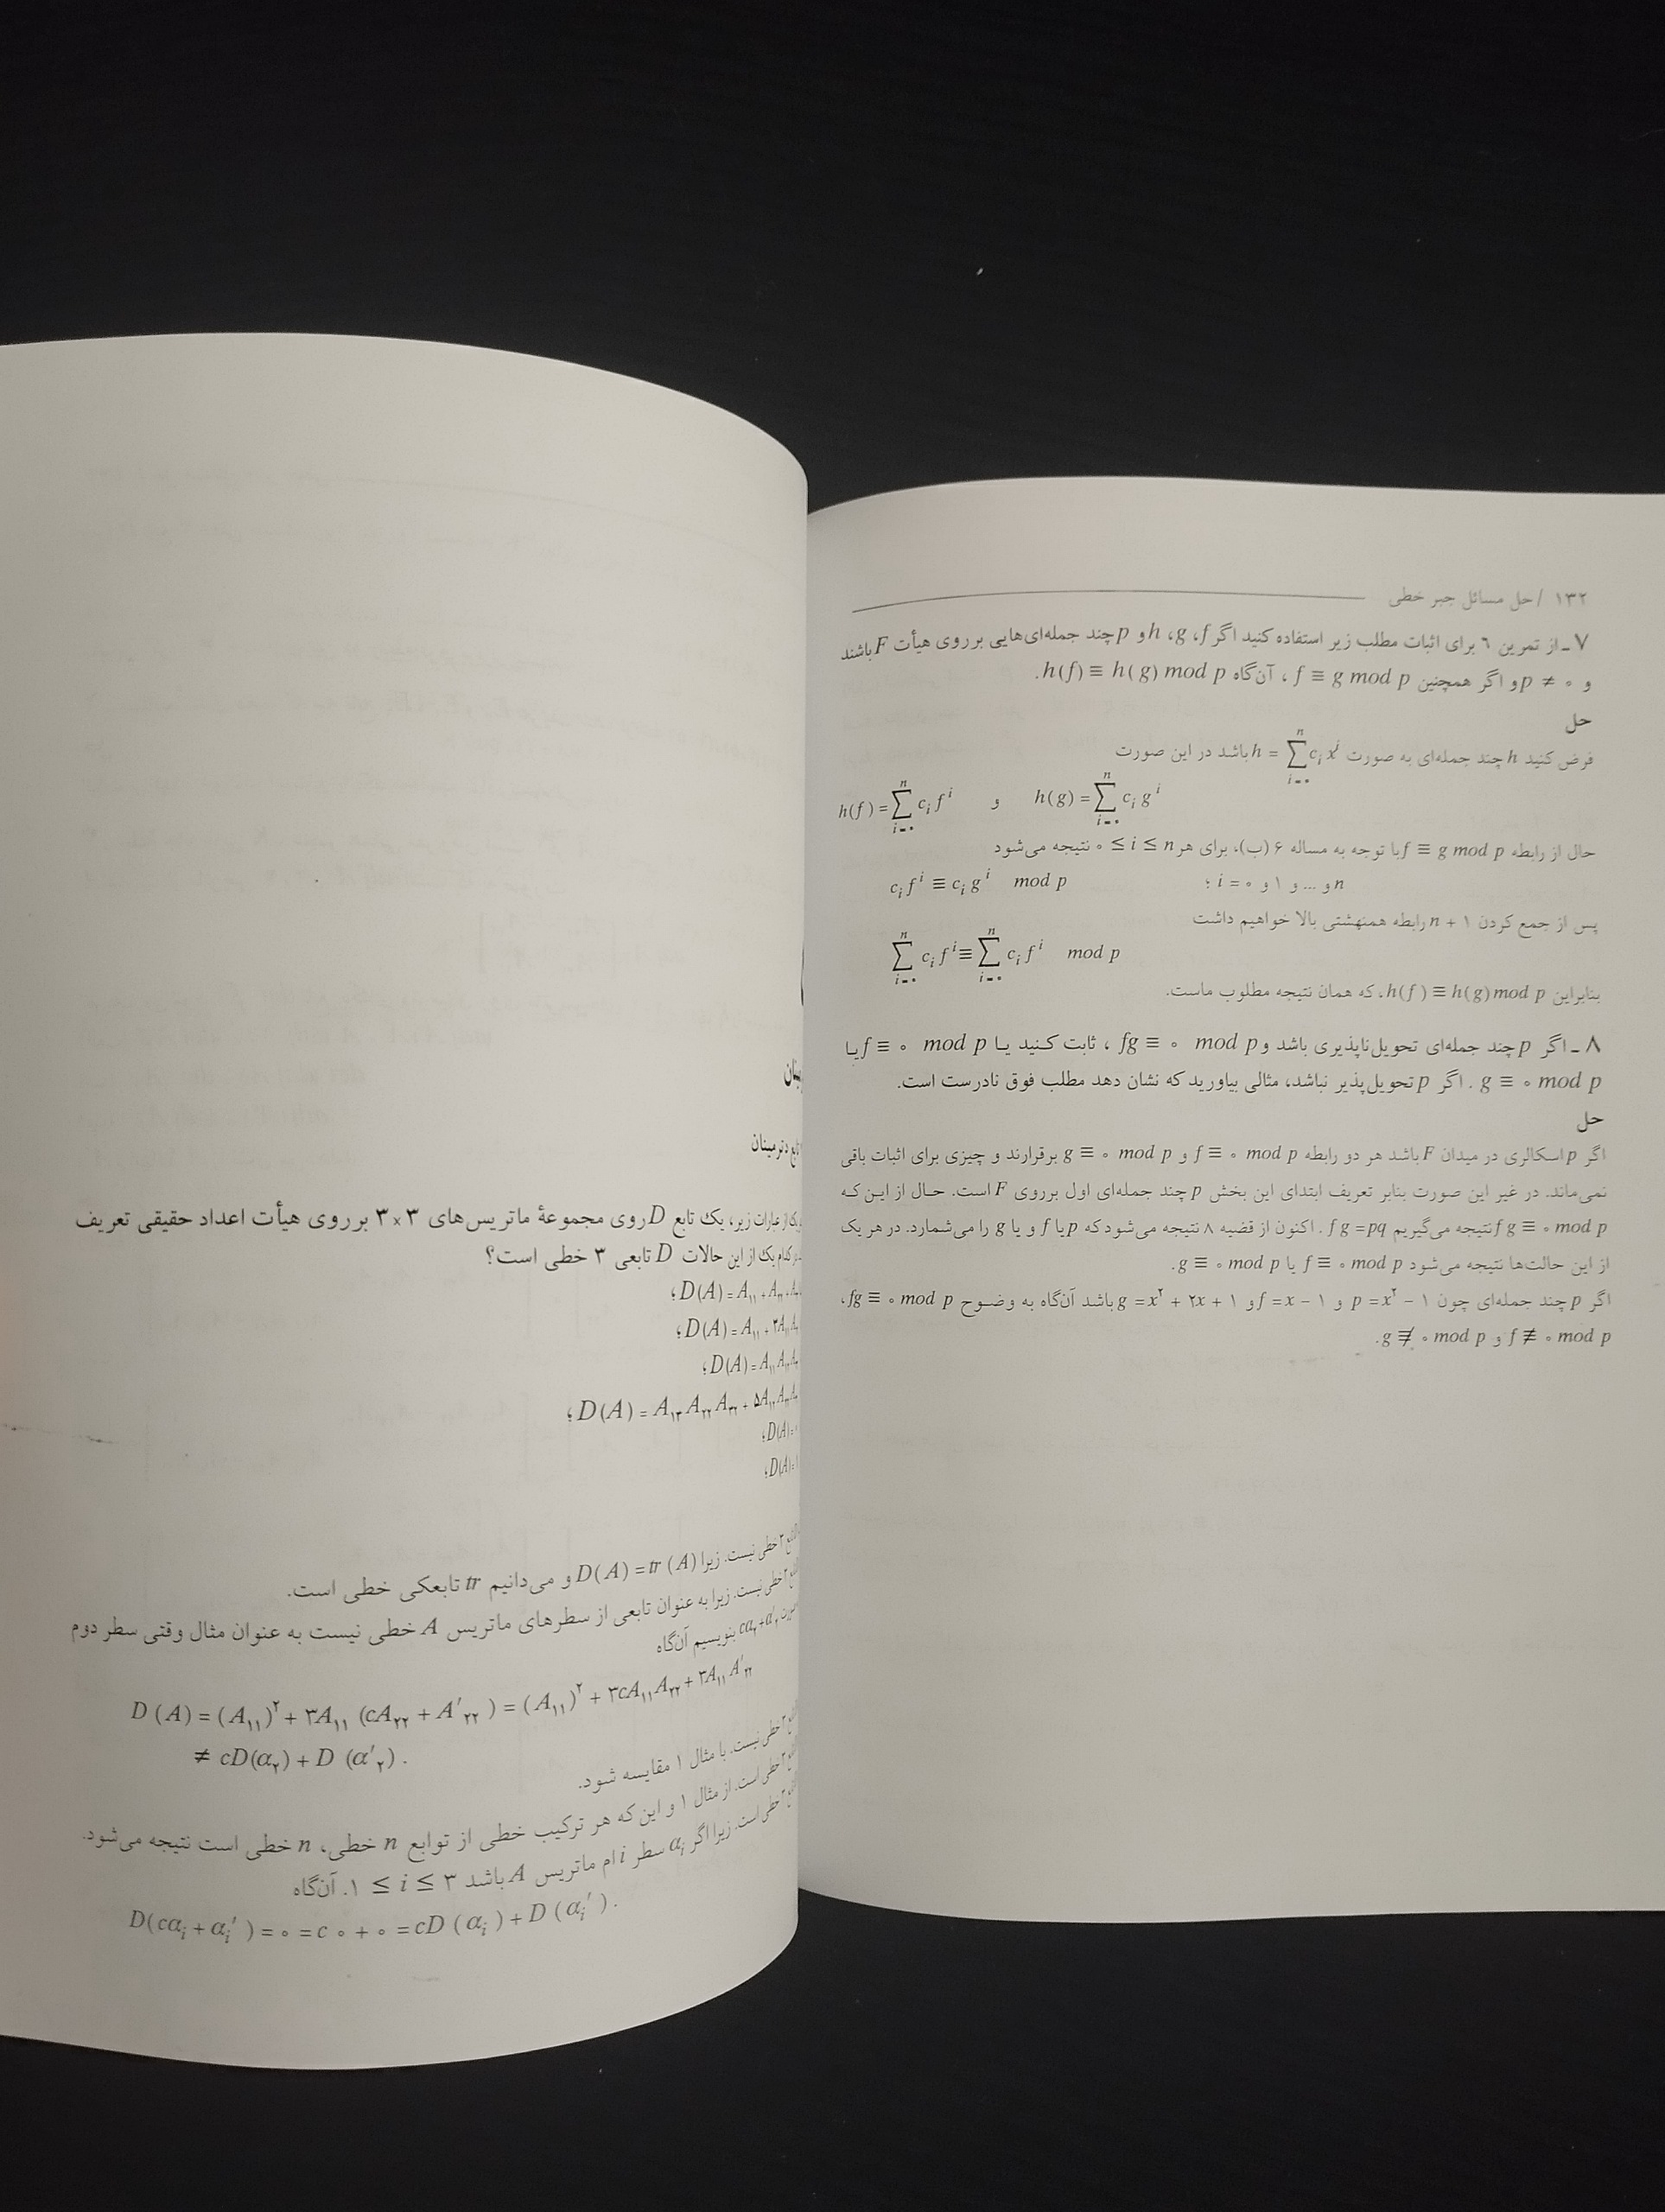 ۱۳۲ / حل مسائل جبر خطی
۷ ـ از تمرین ٦ برای اثبات مطلب زیر استفاده کنید اگر f، g، h و p چند جمله‌ای‌هایی بر روی هیأت F باشند
و p ≠ ۰ و اگر همچنین f ≡ g mod p ، آن‌گاه h(f) ≡ h(g) mod p.
حل
فرض کنید h چند جمله‌ای به صورت h = ∑_{i=۰}^{n} c_i x^i باشد در این صورت
h(f) = ∑_{i=۰}^{n} c_i f^i و h(g) = ∑_{i=۰}^{n} c_i g^i
حال از رابطه f ≡ g mod p با توجه به مساله ۶ (ب)، برای هر ۰ ≤ i ≤ n نتیجه می‌شود
c_i f^i ≡ c_i g^i mod p ؛ i = ۰ و ۱ و ... و n
پس از جمع کردن n + ۱ رابطه همنهشتی بالا خواهیم داشت
∑_{i=۰}^{n} c_i f^i ≡ ∑_{i=۰}^{n} c_i f^i mod p
بنابراین h(f) ≡ h(g) mod p، که همان نتیجه مطلوب ماست.
۸ ـ اگر p چند جمله‌ای تحویل‌ناپذیری باشد و fg ≡ ۰ mod p ، ثابت کـنید یـا f ≡ ۰ mod p یـا
g ≡ ۰ mod p . اگر p تحویل‌پذیر نباشد، مثالی بیاورید که نشان دهد مطلب فوق نادرست است.
حل
اگر p اسکالری در میدان F باشد هر دو رابطه f ≡ ۰ mod p و g ≡ ۰ mod p برقرارند و چیزی برای اثبات باقی
نمی‌ماند. در غیر این صورت بنابر تعریف ابتدای این بخش p چند جمله‌ای اول برروی F است. حـال از ایـن کـه
fg ≡ ۰ mod p نتیجه می‌گیریم fg = pq . اکنون از قضیه ۸ نتیجه می‌شود که p یا f و یا g را می‌شمارد. در هر یک
از این حالت‌ها نتیجه می‌شود f ≡ ۰ mod p یا g ≡ ۰ mod p.
اگر p چند جمله‌ای چون p = x² − ۱ و f = x − ۱ و g = x² + ۲x + ۱ باشد آن‌گاه به وضـوح fg ≡ ۰ mod p،
f ≢ ۰ mod p و g ≢ ۰ mod p.
تابع دترمینان
از عبارات زیر، یک تابع D روی مجموعهٔ ماتریس‌های ۳×۳ بر روی هیأت اعداد حقیقی تعریف
کدام یک از این حالات D تابعی ۳ خطی است؟
D(A) = A₁₁ + A₂₂ +
D(A) = A₁₁ + ۳A₁₁
D(A) = A₁₁ A₁₂
D(A) = A₁₃ A₂₂ A₃₂ + ۵A₁₂
D(A) = ۰؛
D(A) = ۱؛
۳ خطی نیست. زیرا D(A) = tr (A) و می‌دانیم tr تابعکی خطی است.
۳ خطی نیست. زیرا به عنوان تابعی از سطرهای ماتریس A خطی نیست به عنوان مثال وقتی سطر دوم
cα₂ + α′₂ بنویسیم آن‌گاه
D (A) = (A₁₁)² + ۳A₁₁ (cA₂₂ + A′₂₂) = (A₁₁)² + ۳cA₁₁ A₂₂ + ۳A₁₁ A′₂₂
≠ cD(α₂) + D (α′₂) .
۳ خطی نیست. با مثال ۱ مقایسه شود.
۳ خطی است. از مثال ۱ و این که هر ترکیب خطی از توابع n خطی، n خطی است نتیجه می‌شود.
۳ خطی است. زیرا اگر α_i سطر i ام ماتریس A باشد ۱ ≤ i ≤ ۳. آن‌گاه
D(cα_i + α_i′) = ۰ = c ۰ + ۰ = cD (α_i) + D (α_i′) .